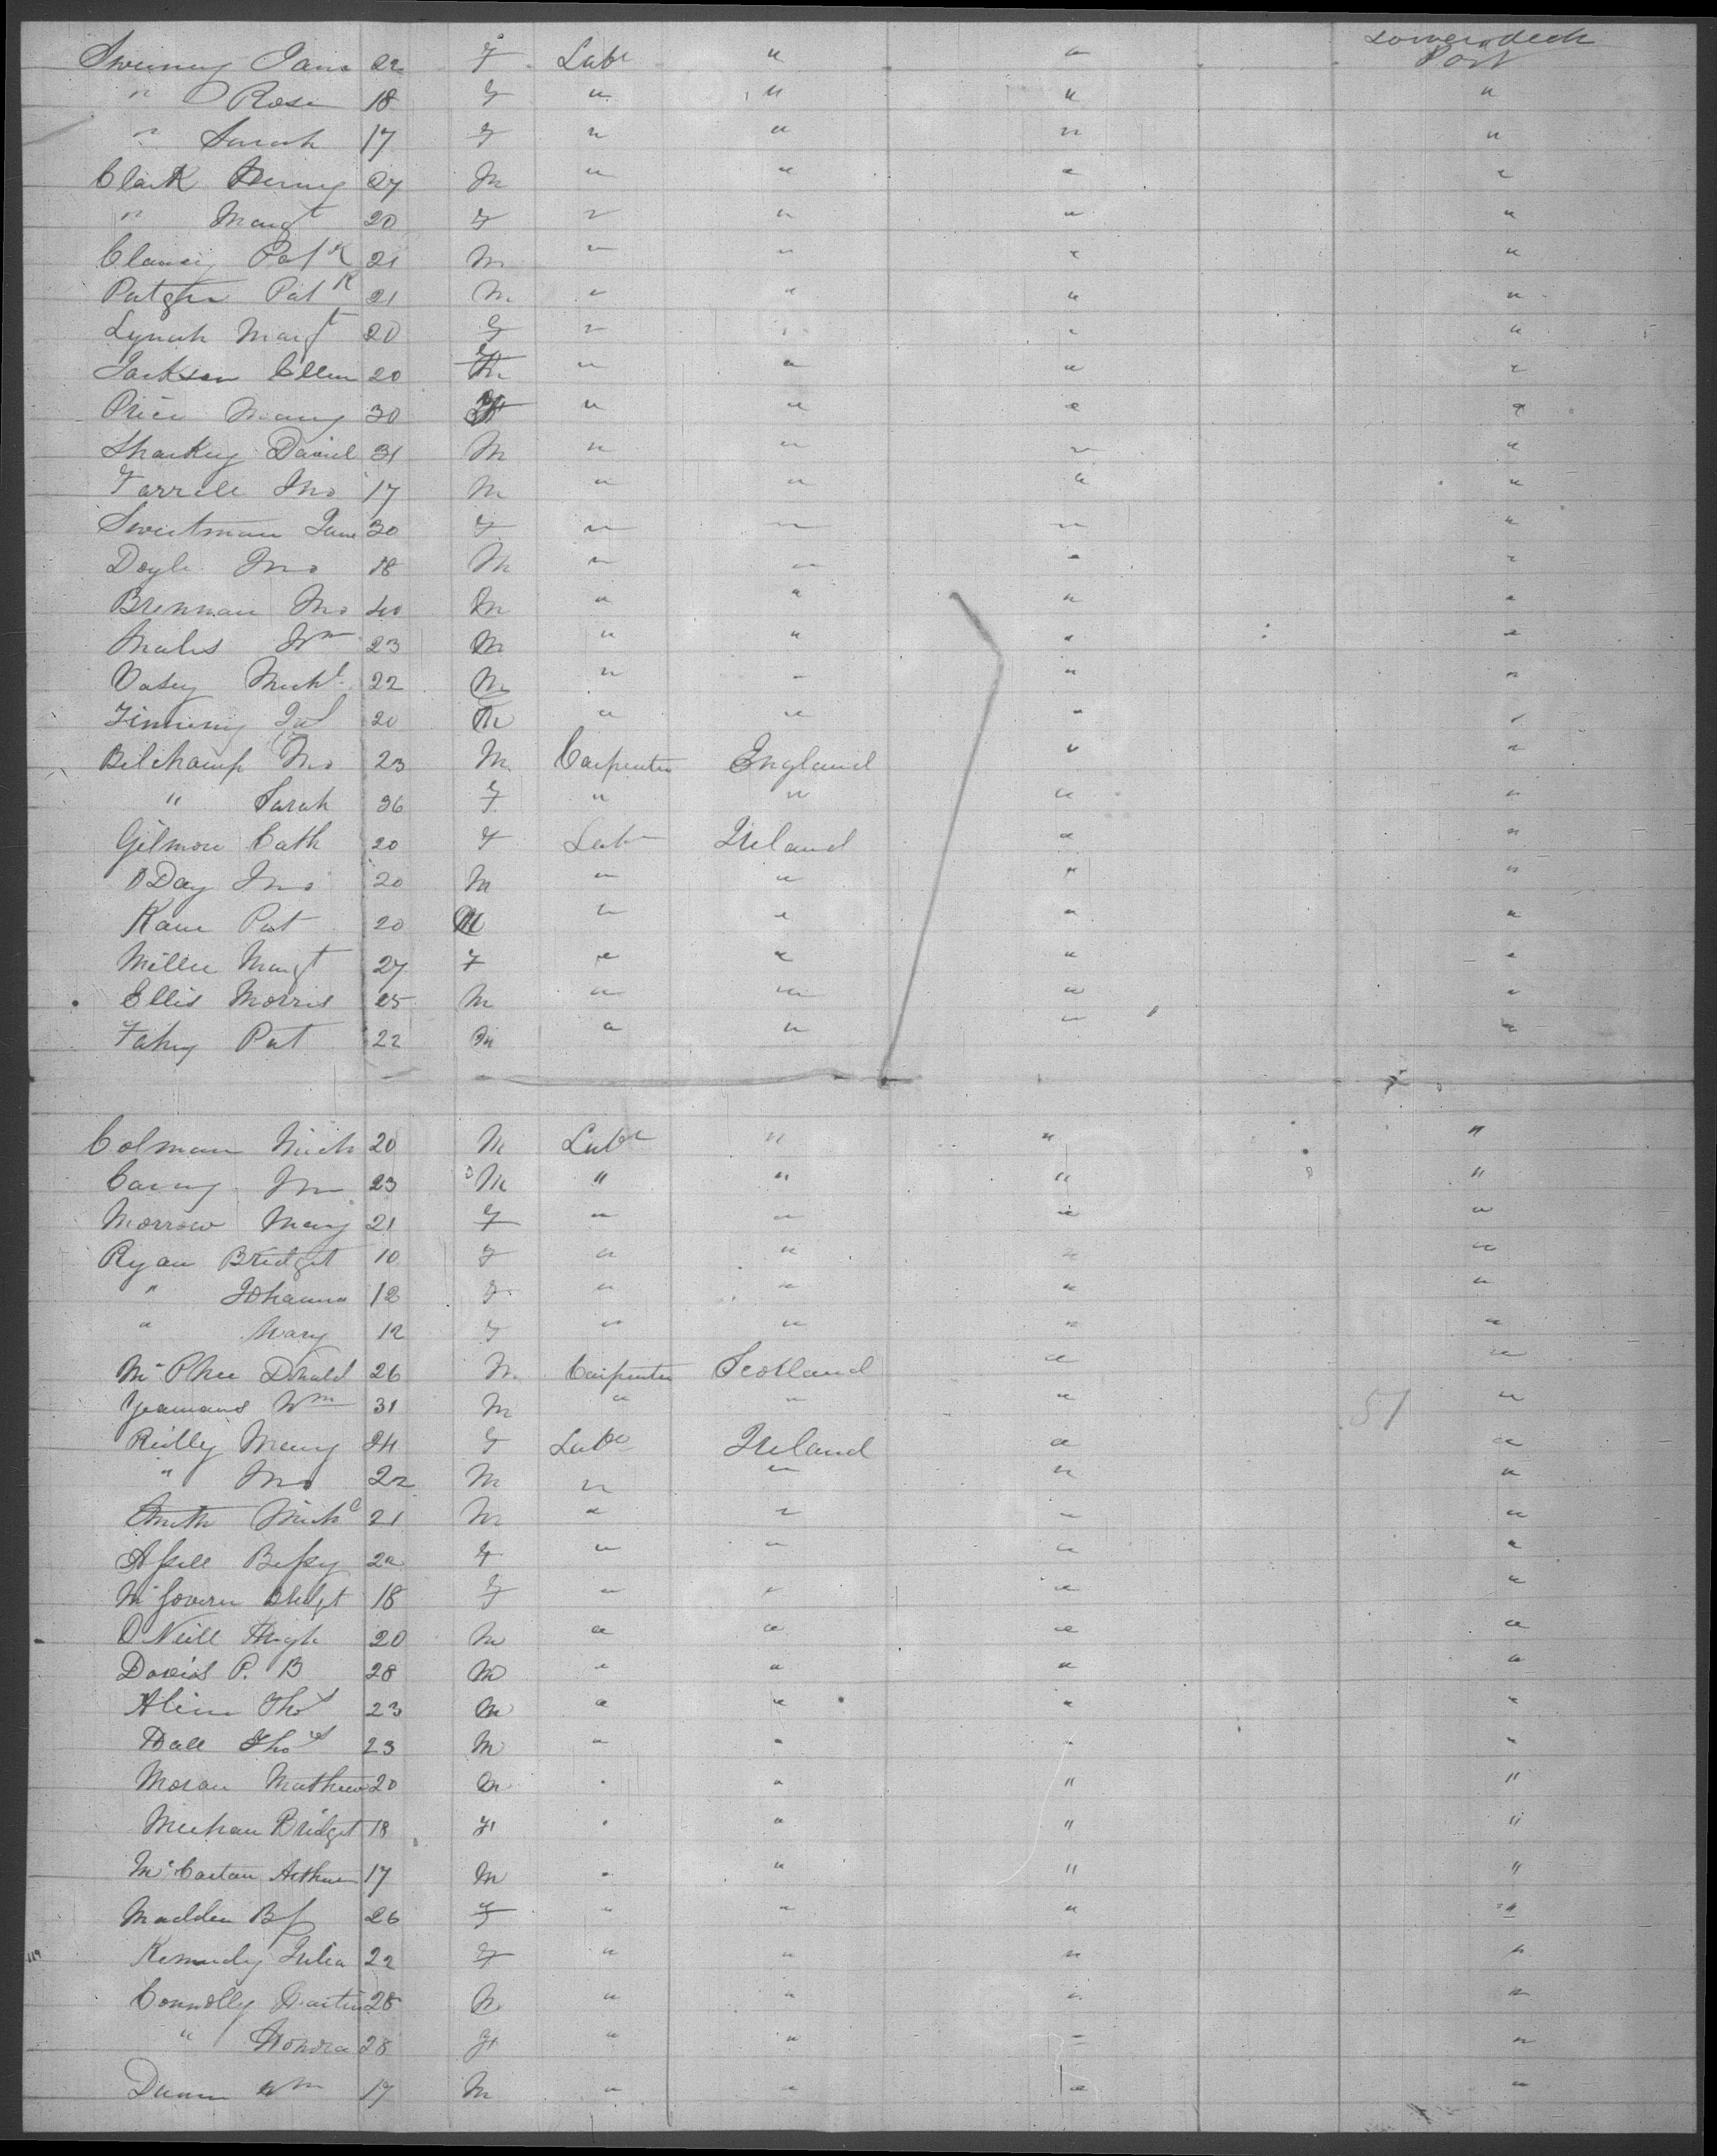 Lowerdeck
Sweeney Jane 22 F Labr " " Port
" Rose 18 F " " " "
" Sarah 17 F " " " "
Clark Henry 27 M " " " "
" Margt 20 F " " " "
Clancy Patk 21 M " " " "
Patk 21 M " " " "
Lynch Margt 20 F " " " "
Jackson Ellen 20 F " " " "
Price Mary 30 F " " " "
Sharkey Daniel 31 M " " " "
Farrell Jno 17 M " " " "
Sweetman Jane 30 F " " " "
Doyle Jno 18 M " " " "
Brennan Jno 40 M " " " "
Wm 23 M " " " "
Michl 22 M " " " "
20 " " " "
Belchamp Jno 23 M Carpenter England " "
" Sarah 36 F " " " "
Gilmore Cath 20 F Labr Ireland " "
O Day Jno 20 M " " " "
Kane Pat 20 M " " " "
Margt 27 F " " " "
Ellis Morris 25 M " " " "
Fahy Pat 22 M " " " "
Colman Mich 20 M Labr " " "
23 M " " " "
Morrow Mary 21 F " " " "
Ryan Bridget 10 F " " " "
" Johanna 12 F " " " "
" Mary 12 F " " " "
Mc Phee Donald 26 M Carpenter Scotland " "
Yeamans Wm 31 M " " " 51 "
Reilly Mary 24 F Labr Ireland " "
" Jno 22 M " " " "
Smith Michl 21 M " " " "
Bessy 22 F " " " "
Mc Govern Bridgt 18 F " " " "
O Neill Hugh 20 M " " " "
Davis P. B 28 M " " " "
Thos 23 M " " " "
Hall Thos 23 M " " " "
Moran Mathew 20 M " " " "
Meehan Bridget 18 F " " " "
Mc Cartan Arthur 17 M " " " "
Madden 26 F " " " "
Kennedy Julia 22 F " " " "
Connolly Martin 28 M " " " "
" Honora 28 F " " " "
Dunn Wm 17 M " " " "